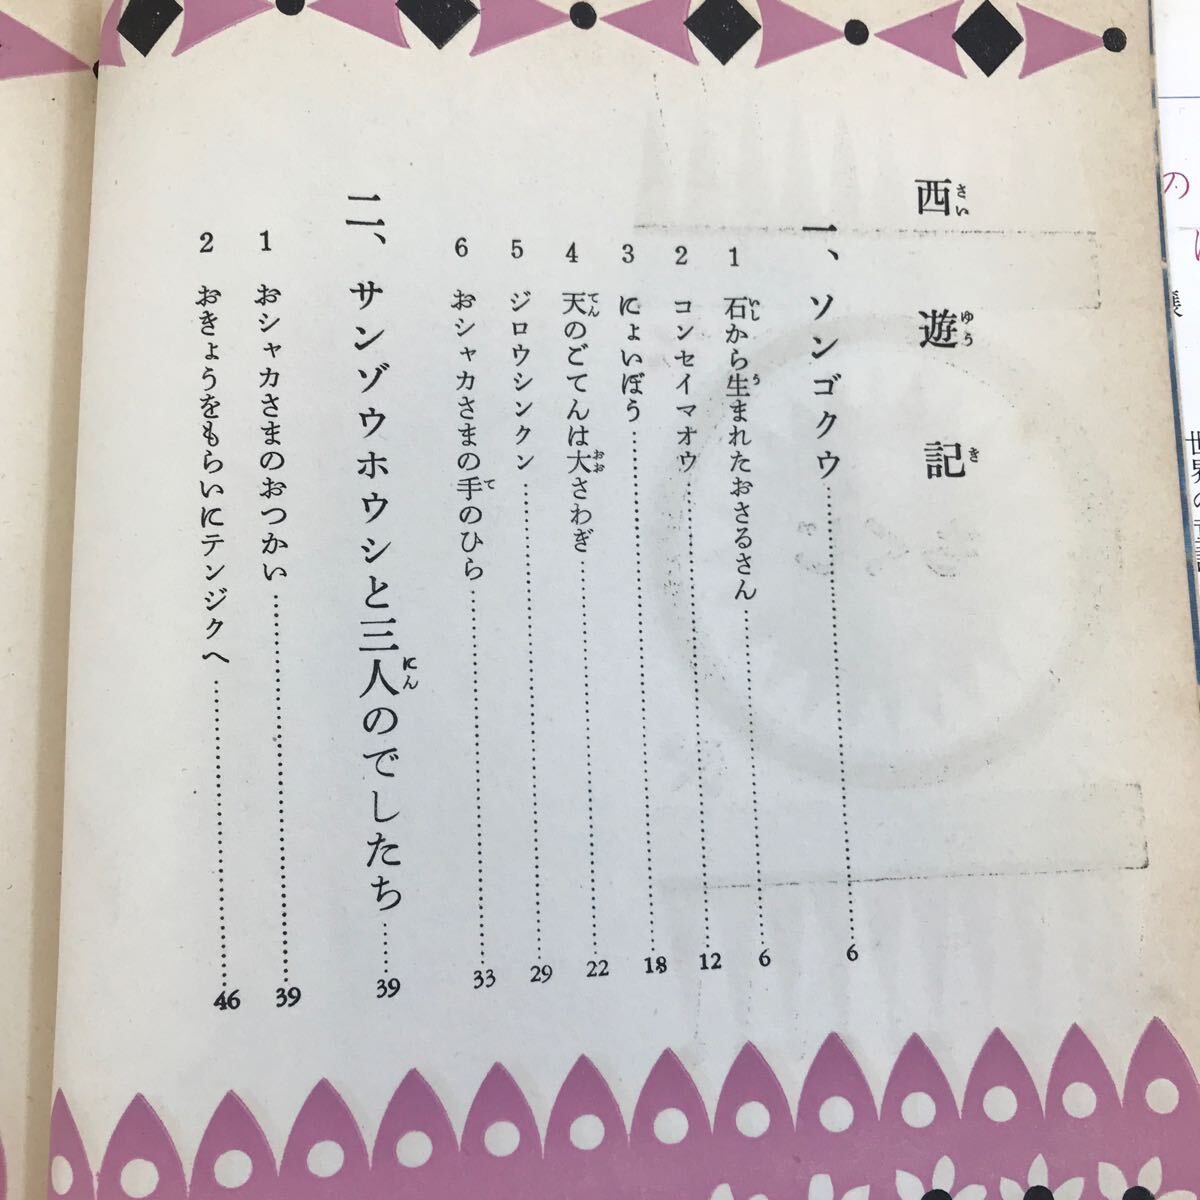 西遊記
さいゆうき
一、ソンゴクウ……6
1 石から生まれたおさるさん……6
いし う
2 コンセイマオウ……12
3 にょいぼう……18
4 天のごてんは大さわぎ……22
てん おお
5 ジロウシンクン……29
6 おシャカさまの手のひら……33
て
二、サンゾウホウシと三人のでしたち……39
にん
1 おシャカさまのおつかい……39
2 おきょうをもらいにテンジクへ……46